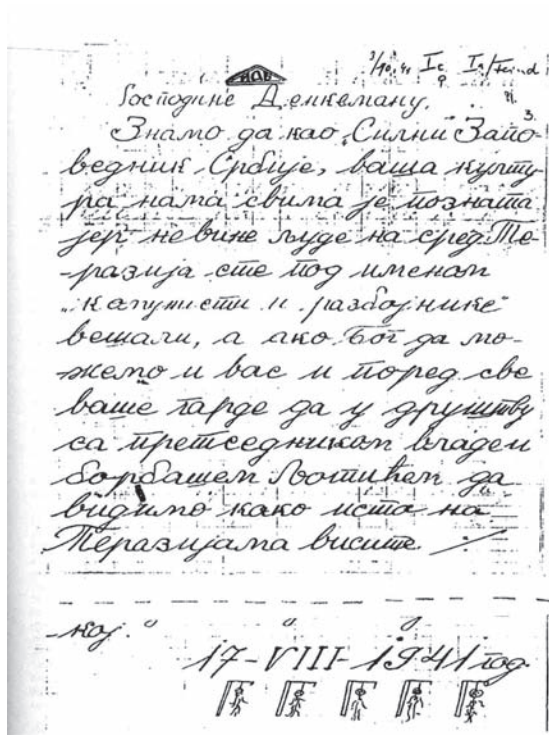 3/10. 41 Ic Ia/Feind
НДВ
Господине Денкеману,
3.
Знамо да као „Силни Запо-
ведник Србије, ваша култу-
ра нама свима је позната
јер невине људе на сред Те-
-разија сте под именом
„камунисти и разбојнике"
вешали, а ако Бог да мо-
-жемо и вас и поред све
ваше гарде да у друштву
са претседником владе и
борбашем Љотићем да
видимо како иста на
Теразијама висите.
-кој.
17-VIII-1941 год.